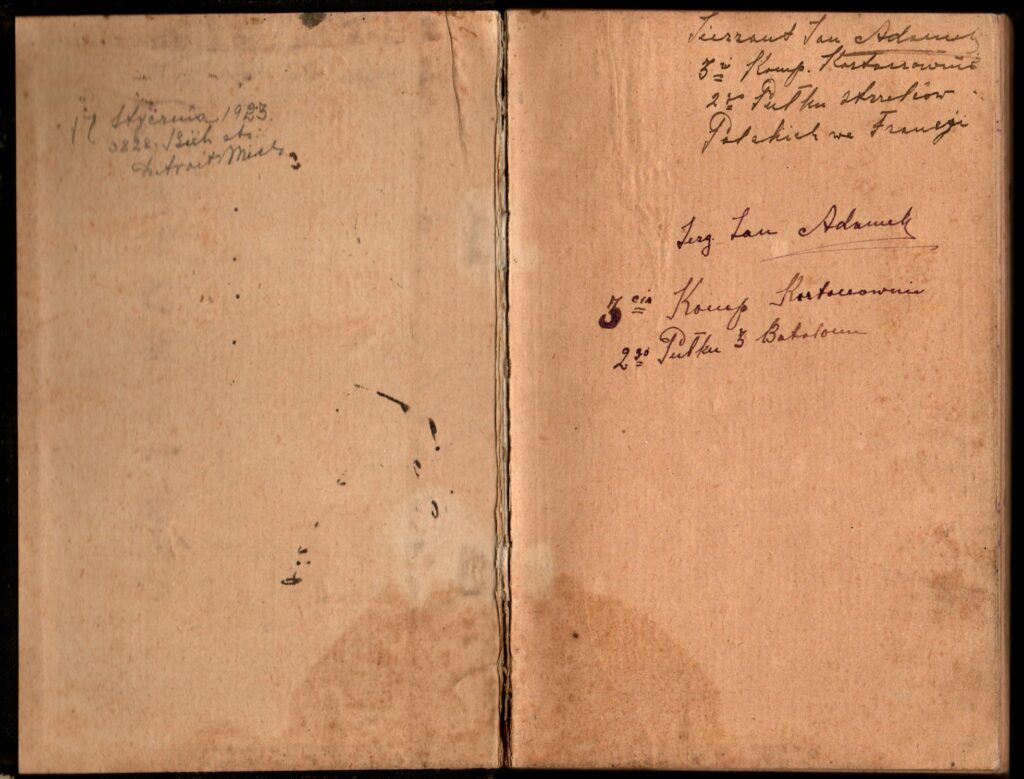 17 Stycznia 1923.
3828. 
Detroit Mich
Sierzant Jan Adamek
3ci Komp. Kartaczownic
2go Pułku strzelców
Polskich we Francyi
Serg. Jan Adamek
3cia Komp Kartaczownic
2go Pułku 3 Batalonu